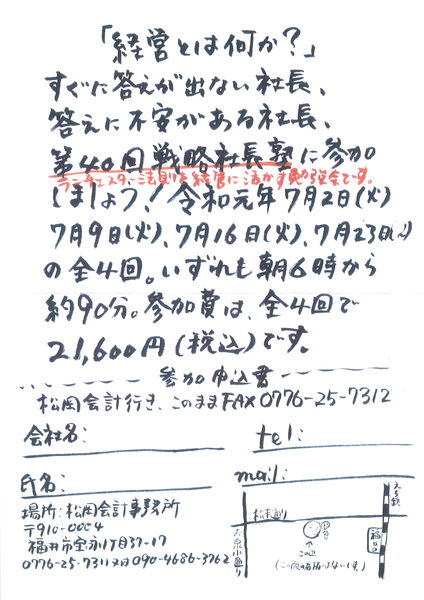 「経営とは何か？」
すぐに答えが出ない社長、
答えに不安がある社長、
第40回戦略社長塾に参加
ランチェスター法則を経営に活かす勉強会です。
しましょう！令和元年7月2日(火)
7月9日(火)、7月16日(火)、7月23日(火)
の全4回。いずれも朝6時から
約90分。参加費は、全4回で
21,600円(税込)です。
参加申込書
松岡会計行き、このままFAX 0776-25-7312
会社名:
tel:
氏名:
mail:
場所:松岡会計事務所
〒910-0004
福井市宝永1丁目37-17
0776-25-7311又は090-4686-3762
松本通り
お泉水通り
えち鉄
福井口
ココ
この辺
(この図の看板はないです。)